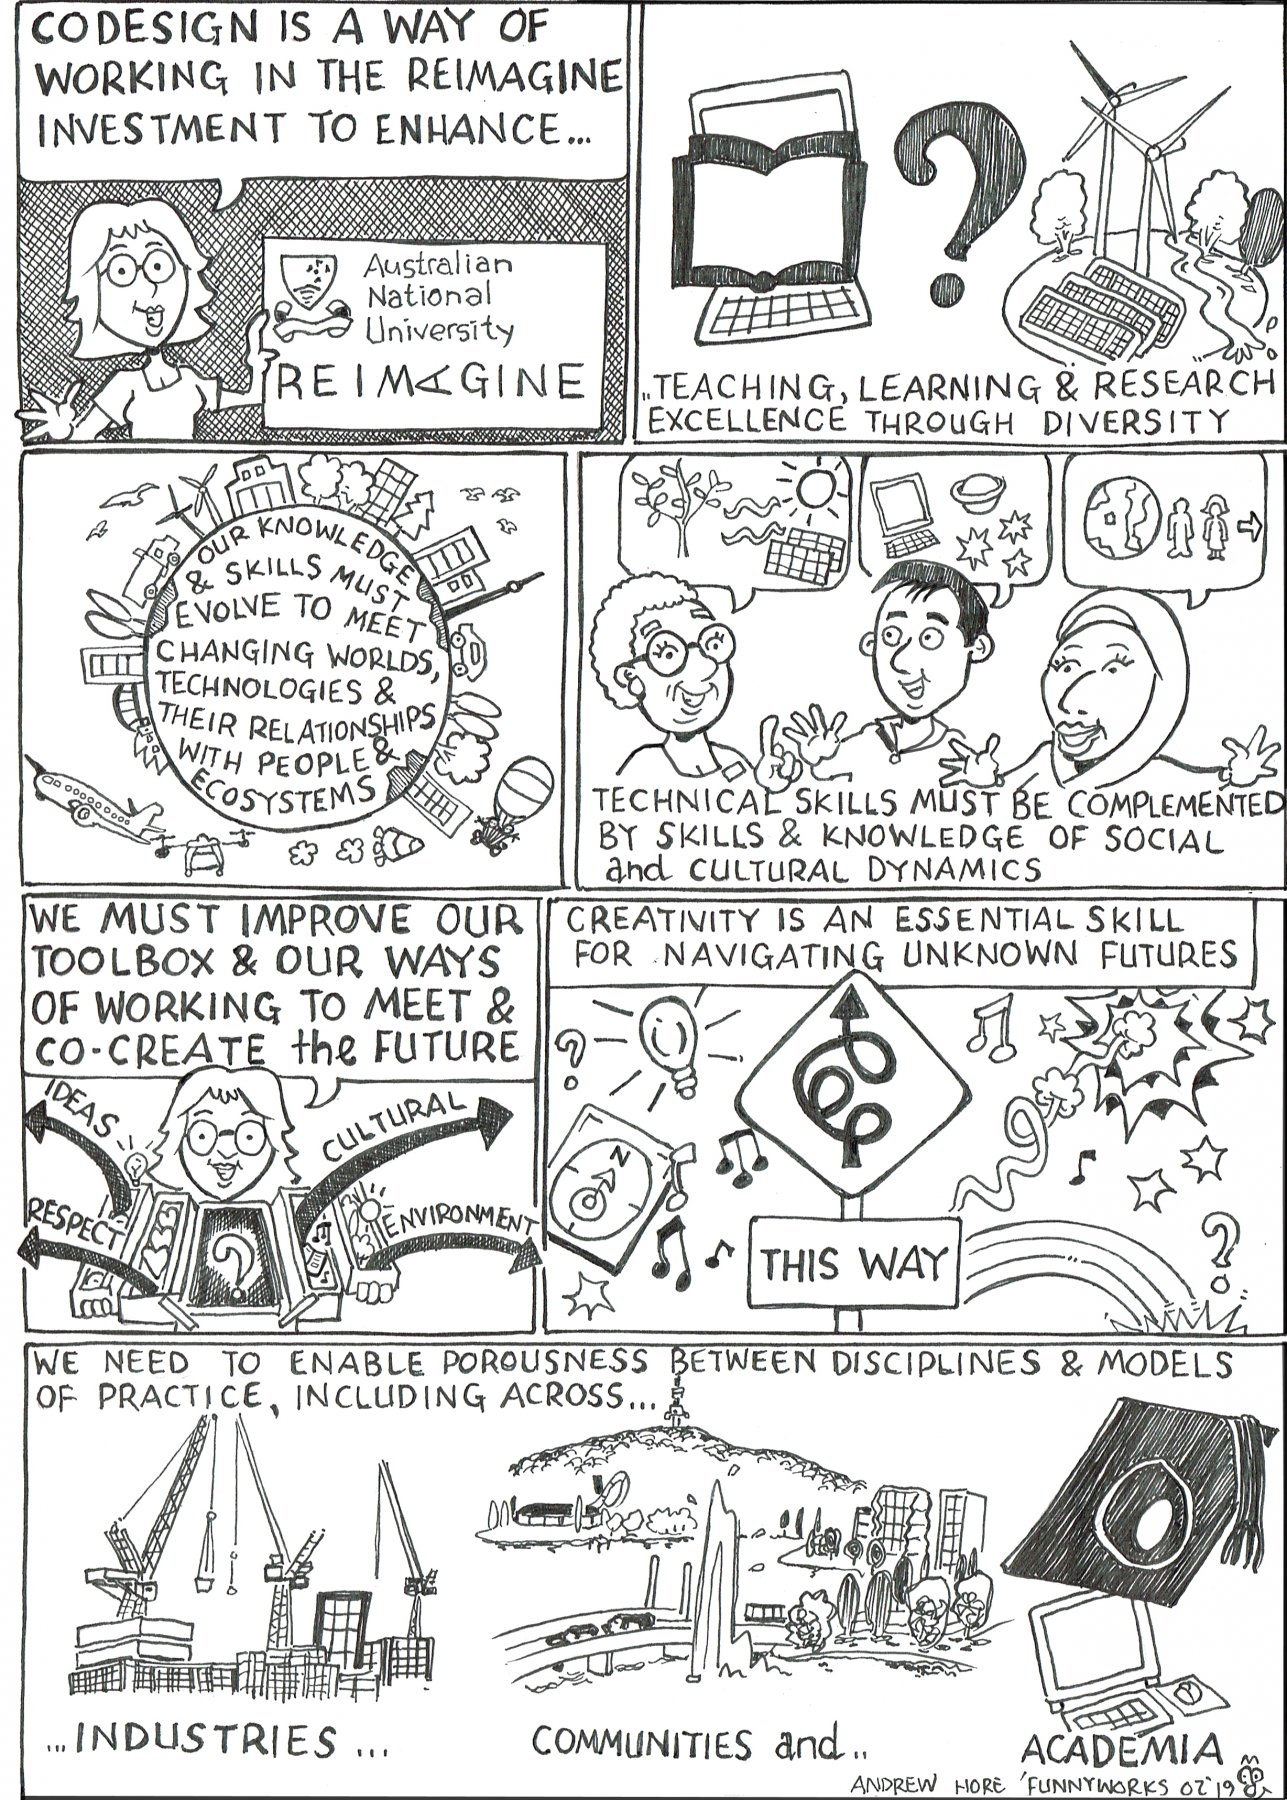 CODESIGN IS A WAY OF
WORKING IN THE REIMAGINE
INVESTMENT TO ENHANCE...
Australian
National
University
REIMAGINE
..TEACHING, LEARNING & RESEARCH
EXCELLENCE THROUGH DIVERSITY
OUR KNOWLEDGE
& SKILLS MUST
EVOLVE TO MEET
CHANGING WORLDS,
TECHNOLOGIES &
THEIR RELATIONSHIPS
WITH PEOPLE &
ECOSYSTEMS
TECHNICAL SKILLS MUST BE COMPLEMENTED
BY SKILLS & KNOWLEDGE OF SOCIAL
and CULTURAL DYNAMICS
WE MUST IMPROVE OUR
TOOLBOX & OUR WAYS
OF WORKING TO MEET &
CO-CREATE the FUTURE
IDEAS
CULTURAL
RESPECT
ENVIRONMENT
?
CREATIVITY IS AN ESSENTIAL SKILL
FOR NAVIGATING UNKNOWN FUTURES
?
N
THIS WAY
?
WE NEED TO ENABLE POROUSNESS BETWEEN DISCIPLINES & MODELS
OF PRACTICE, INCLUDING ACROSS...
...INDUSTRIES...
COMMUNITIES and..
ACADEMIA
ANDREW HORE 'FUNNYWORKS 02'19